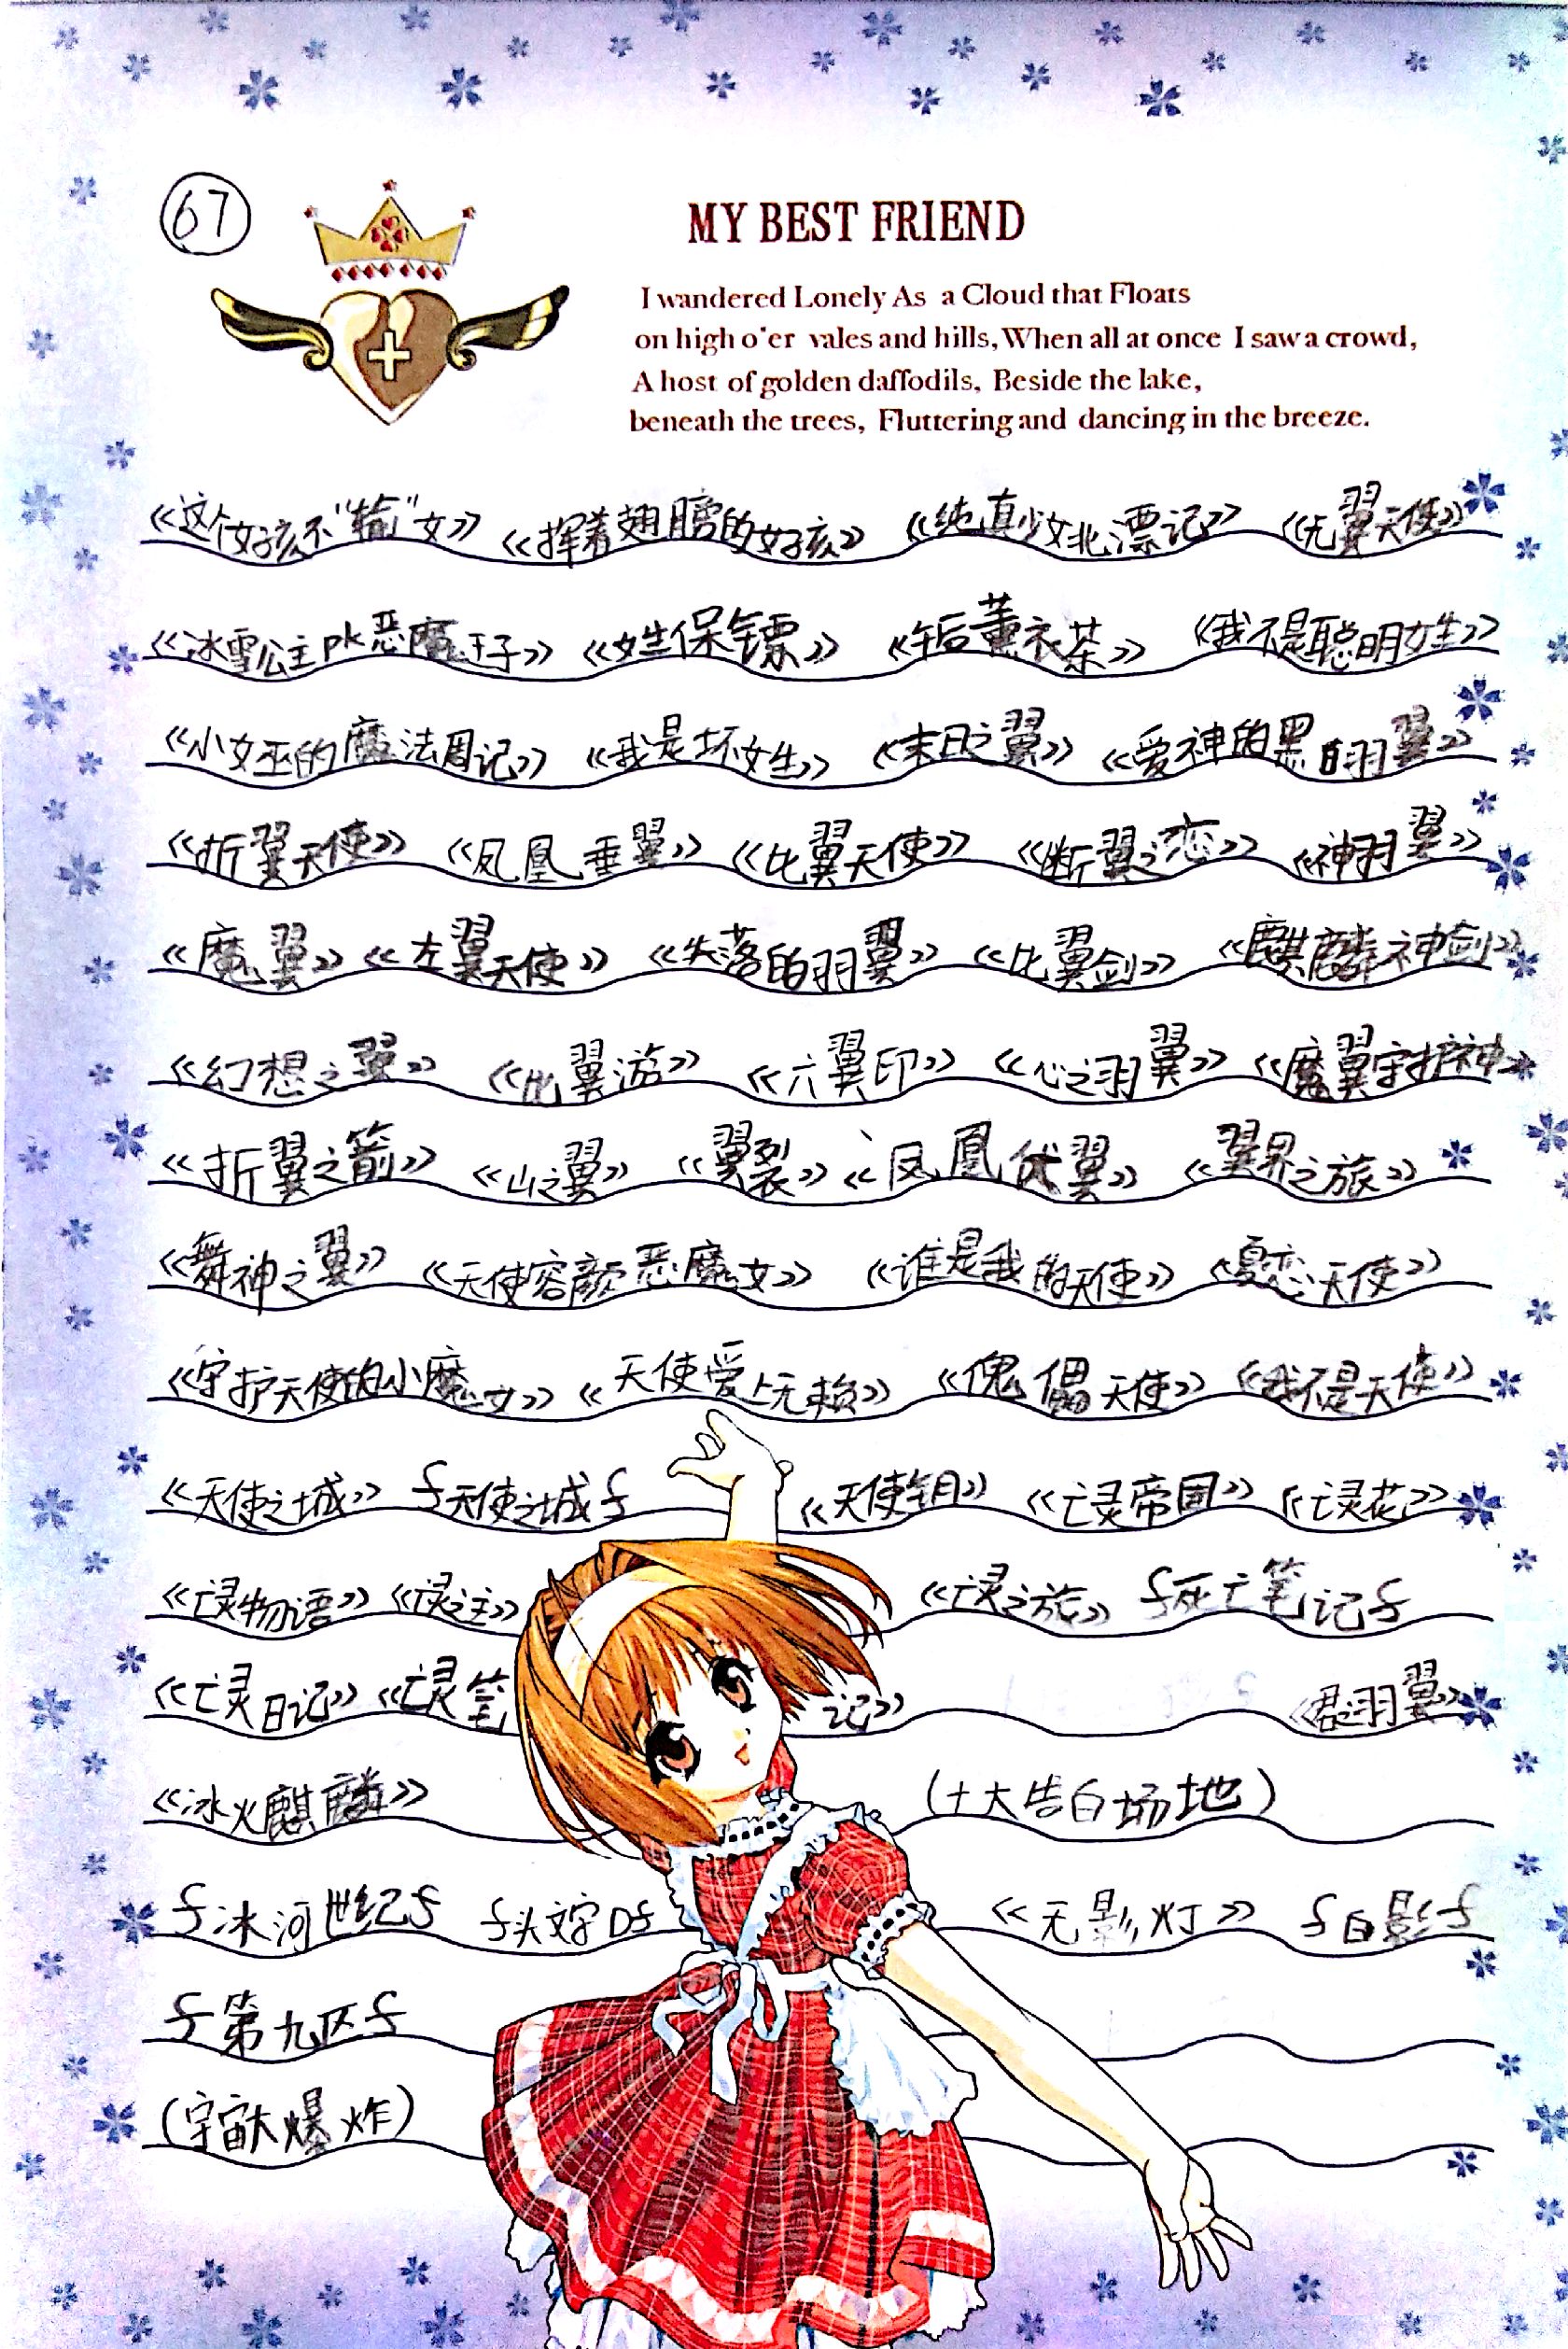 67
MY BEST FRIEND
I wandered Lonely As a Cloud that Floats
on high o'er vales and hills, When all at once I saw a crowd,
A host of golden daffodils, Beside the lake,
beneath the trees, Fluttering and dancing in the breeze.
《这个女孩不“输”女》 《挥着翅膀的女孩》 《纯真少女北漂记》 《无翼天使》
《冰雪公主pk恶魔王子》 《女生保镖》 《午后薰衣茶》 《我不是聪明女生》
《小女巫的魔法周记》 《我是坏女生》 《末日之翼》 《爱神的黑白羽翼》
《折翼天使》 《凤凰垂翼》 《比翼天使》 《断翼之恋》 《神羽翼》
《魔翼》 《左翼天使》 《失落的羽翼》 《比翼剑》 《麒麟神剑》
《幻想之翼》 《比翼游》 《六翼印》 《心之羽翼》 《魔翼守护神》
《折翼之箭》 《山之翼》 《翼裂》 《凤凰伏翼》 《翼界之旅》
《舞神之翼》 《天使容颜恶魔女》 《谁是我的天使》 《夏恋天使》
《守护天使的小魔女》 《天使爱上无赖》 《傀儡天使》 《我不是天使》
《天使之城》 ∮天使之城∮ 《天使钥》 《亡灵帝国》 《亡灵花》
《亡灵物语》 《亡灵之主》 《亡灵之旅》 ∮死亡笔记∮
《亡灵日记》 《亡灵笔记》 《君之羽翼》
《冰火麒麟》 (十大告白场地)
∮冰河世纪∮ ∮头文字D∮ 《无影灯》 ∮白影∮
∮第九区∮
(宇宙大爆炸)